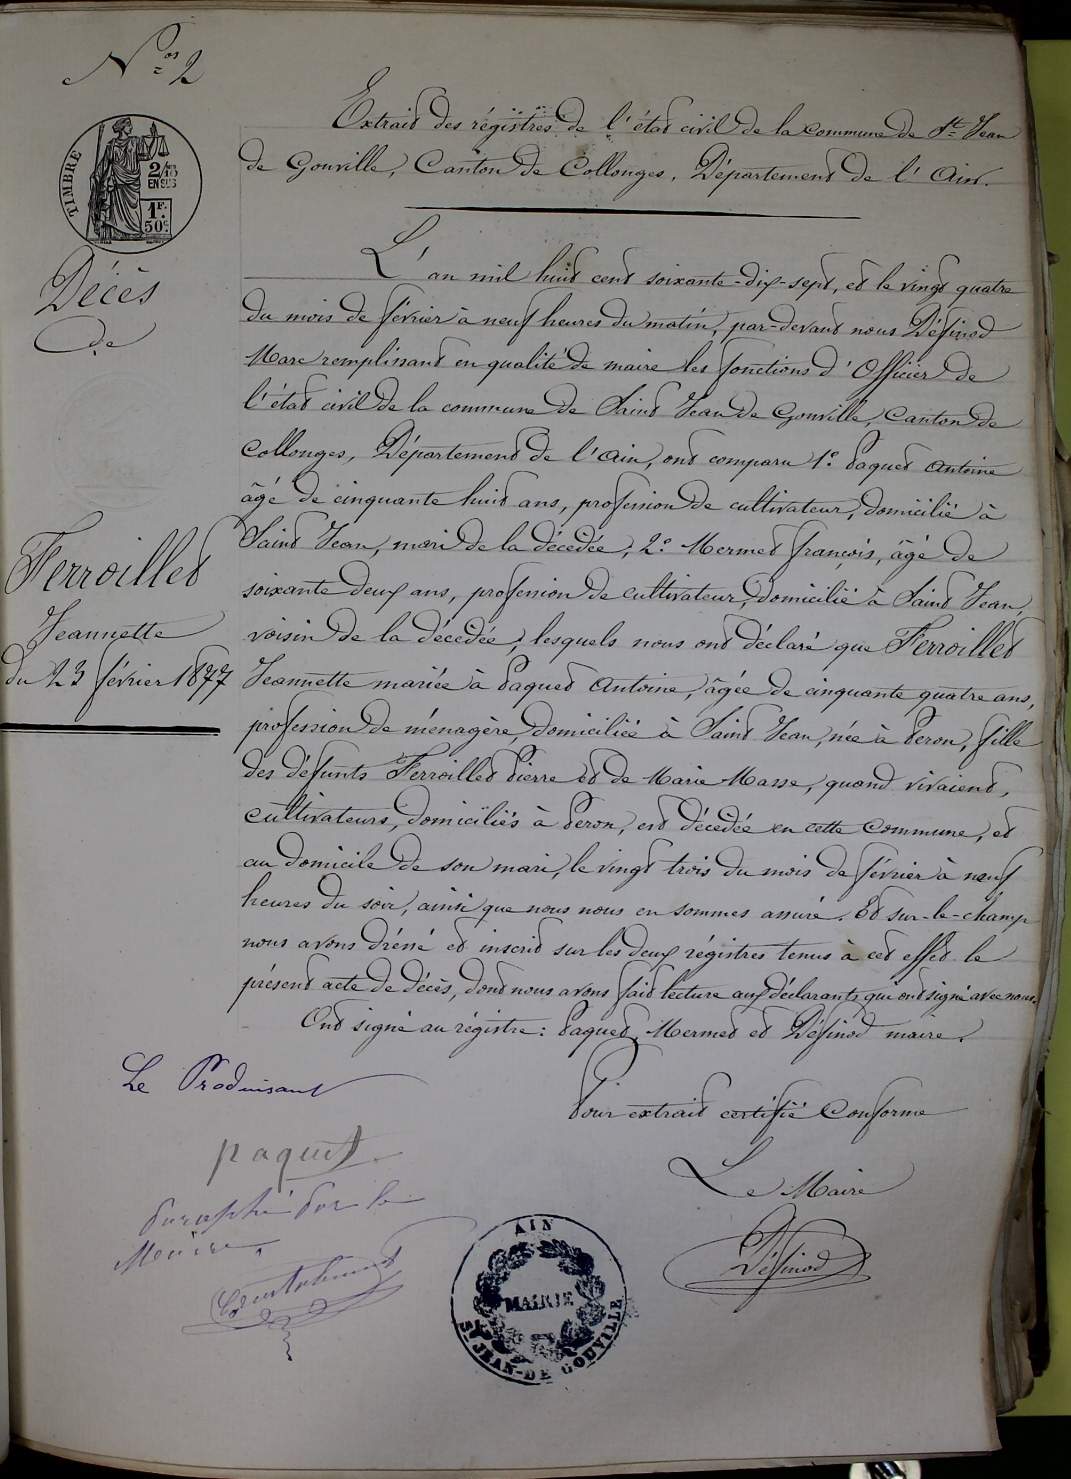 Nos 2
TIMBRE
2/10
EN SUS
1F.
50c
Décès
de
Ferroillet
Jeannette
du 23 février 1877
Extrait des régistres de l'état civil de la commune de St Jean
de Gonville, Canton de Collonges, Département de l'Ain.
L'an mil huit cent soixante-dix-sept, et le vingt quatre
du mois de février à neuf heures du matin, par-devant nous Définod
Marc remplissant en qualité de maire les fonctions d'Officier de
l'état civil de la commune de Saint Jean de Gonville, Canton de
Collonges, Département de l'Ain, ont comparu 1° Paquet Antoine
âgé de cinquante huit ans, profession de cultivateur, domicilié à
Saint Jean, mari de la décedée, 2° Mermet françois, âgé de
soixante deux ans, profession de cultivateur, domicilié à Saint Jean,
voisin de la décedée, lesquels nous ont déclaré que Ferroillet
Jeannette mariée à Paquet Antoine, âgée de cinquante quatre ans,
profession de ménagère, domiciliée à Saint Jean, née à Peron, fille
des défunts Ferroillet Pierre et de Marie Masse, quand vivaient,
cultivateurs, domiciliés à Peron, est décedée en cette commune, et
au domicile de son mari, le vingt trois du mois de février à neuf
heures du soir, ainsi que nous nous en sommes assuré. Et sur-le-champ
nous avons dréssé et inscrit sur les deux régistres tenus à cet effet le
présent acte de décès, dont nous avons fait lecture aux déclarants qui ont signé avec nous.
Ont signé au régistre: Paquet, Mermet et Définod maire.
Le Produisant
Pour extrait certifié Conforme
paquet
Le Maire
Paraphé par le
Maire
Définod
AIN
MAIRIE
St JEAN-DE GOUVILLE